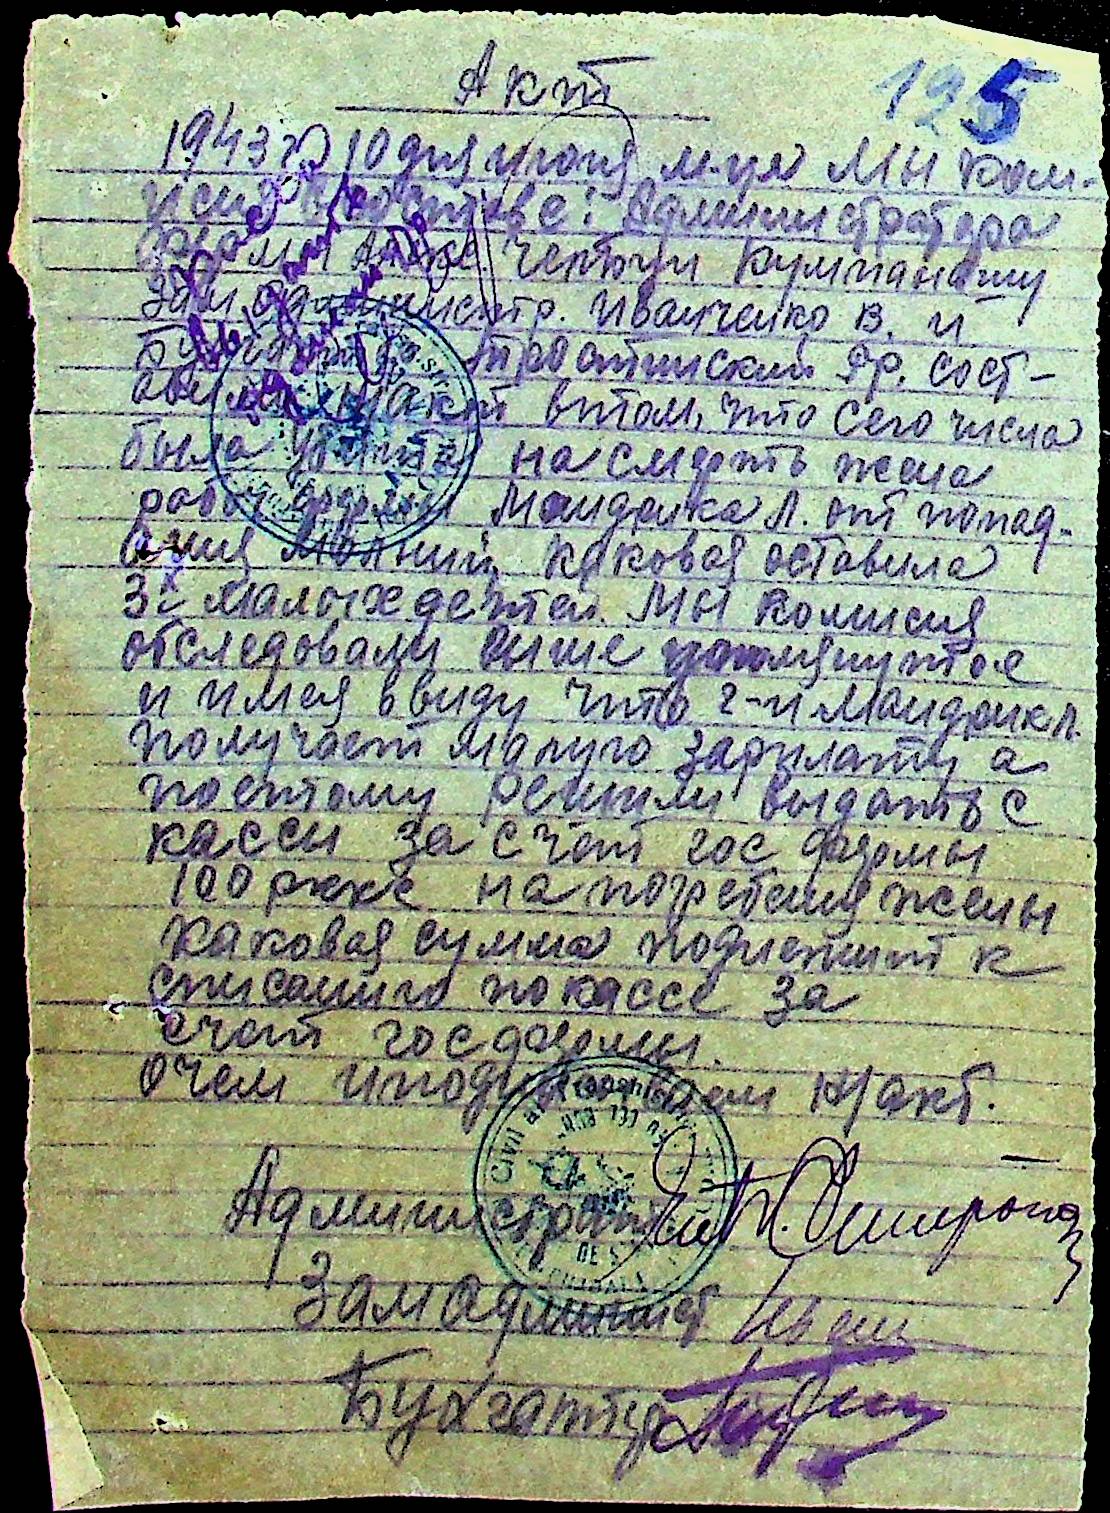 Акт
125
1943 г 10 дня июня м-ця Мы ком-
исия в составе: Администратора
фермы Чентоуи Кумпанашу
Зам админстр. Иванченко В. и
Фр. сост-
акт втом, что сего числа
была убита на смерть жена
рабоч фермы Мандрика Л. от попад-
ания молнии, каковая оставила
3х малых детей. Мы комисия
обследовали више упомянутое
и имея ввиду что г-н Мандрик Л.
получает малуго зарплату а
поетому решили выдать с
кассы за счет гос фермы
100 ркке на погребения жены
каковая сумма подлежит к
списанию по кассе за
счет гос фермы.
Очем и подписываем н/акт.
Администрат
Замадминист Иван
Бухгалтер